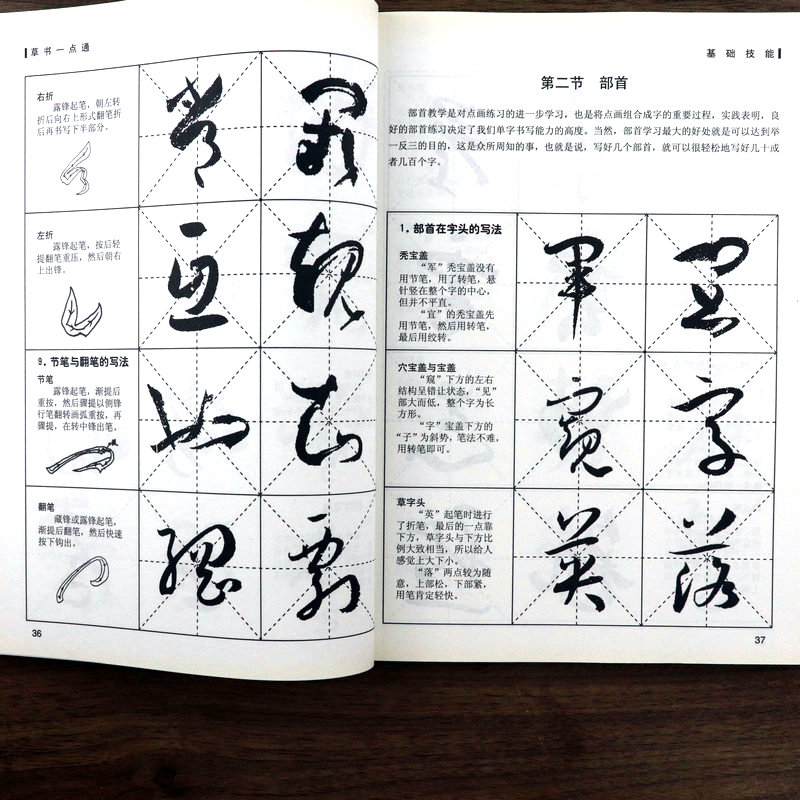 草书一点通
右折
露锋起笔，朝左转
折后向右上形式翻笔折
后再书写下半部分。
左折
露锋起笔，按后轻
提翻笔重压，然后朝右
上出锋。
9. 节笔与翻笔的写法
节笔
露锋起笔，渐提后
重按，然后骤提以侧锋
行笔翻转画弧重按，再
骤提，在转中锋出笔。
翻笔
藏锋或露锋起笔，
渐提后翻笔，然后快速
按下钩出。
36
基础技能
第二节 部首
部首教学是对点画练习的进一步学习，也是将点画组合成字的重要过程，实践表明，良
好的部首练习决定了我们单字书写能力的高度。当然，部首学习最大的好处就是可以达到举
一反三的目的，这是众所周知的事，也就是说，写好几个部首，就可以很轻松地写好几十或
者几百个字。
1. 部首在字头的写法
秃宝盖
“军”秃宝盖没有
用节笔，用了转笔，悬
针竖在整个字的中心，
但并不平直。
“宜”的秃宝盖先
用节笔，然后用转笔，
最后用绞转。
军 宜
穴宝盖与宝盖
“窥”下方的左右
结构呈错让状态，“见”
部大而低，整个字为长
方形。
“字”宝盖下方的
“子”为斜势，笔法不难，
用转笔即可。
窥 字
草字头
“英”起笔时进行
了折笔，最后的一点靠
下方，草字头与下方比
例大致相当，所以给人
感觉上大下小。
“落”两点较为随
意，上部松，下部紧，
用笔肯定轻快。
英 落
37